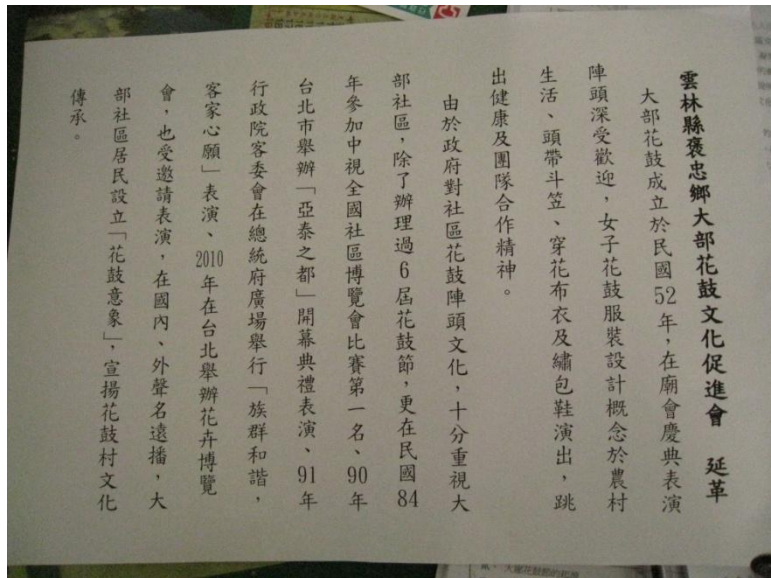 雲林縣褒忠鄉大部花鼓文化促進會 延革
大部花鼓成立於民國52年,在廟會慶典表演
陣頭深受歡迎,女子花鼓服裝設計概念於農村
生活、頭帶斗笠、穿花布衣及繡包鞋演出,跳
出健康及團隊合作精神。
由於政府對社區花鼓陣頭文化,十分重視大
部社區,除了辦理過6屆花鼓節,更在民國84
年參加中視全國社區博覽會比賽第一名、90年
台北市舉辦「亞泰之都」開幕典禮表演、91年
行政院客委會在總統府廣場舉行「族群和諧,
客家心願」表演、2010年在台北舉辦花卉博覽
會,也受邀請表演,在國內、外聲名遠播,大
部社區居民設立「花鼓意象」,宣揚花鼓村文化
傳承。